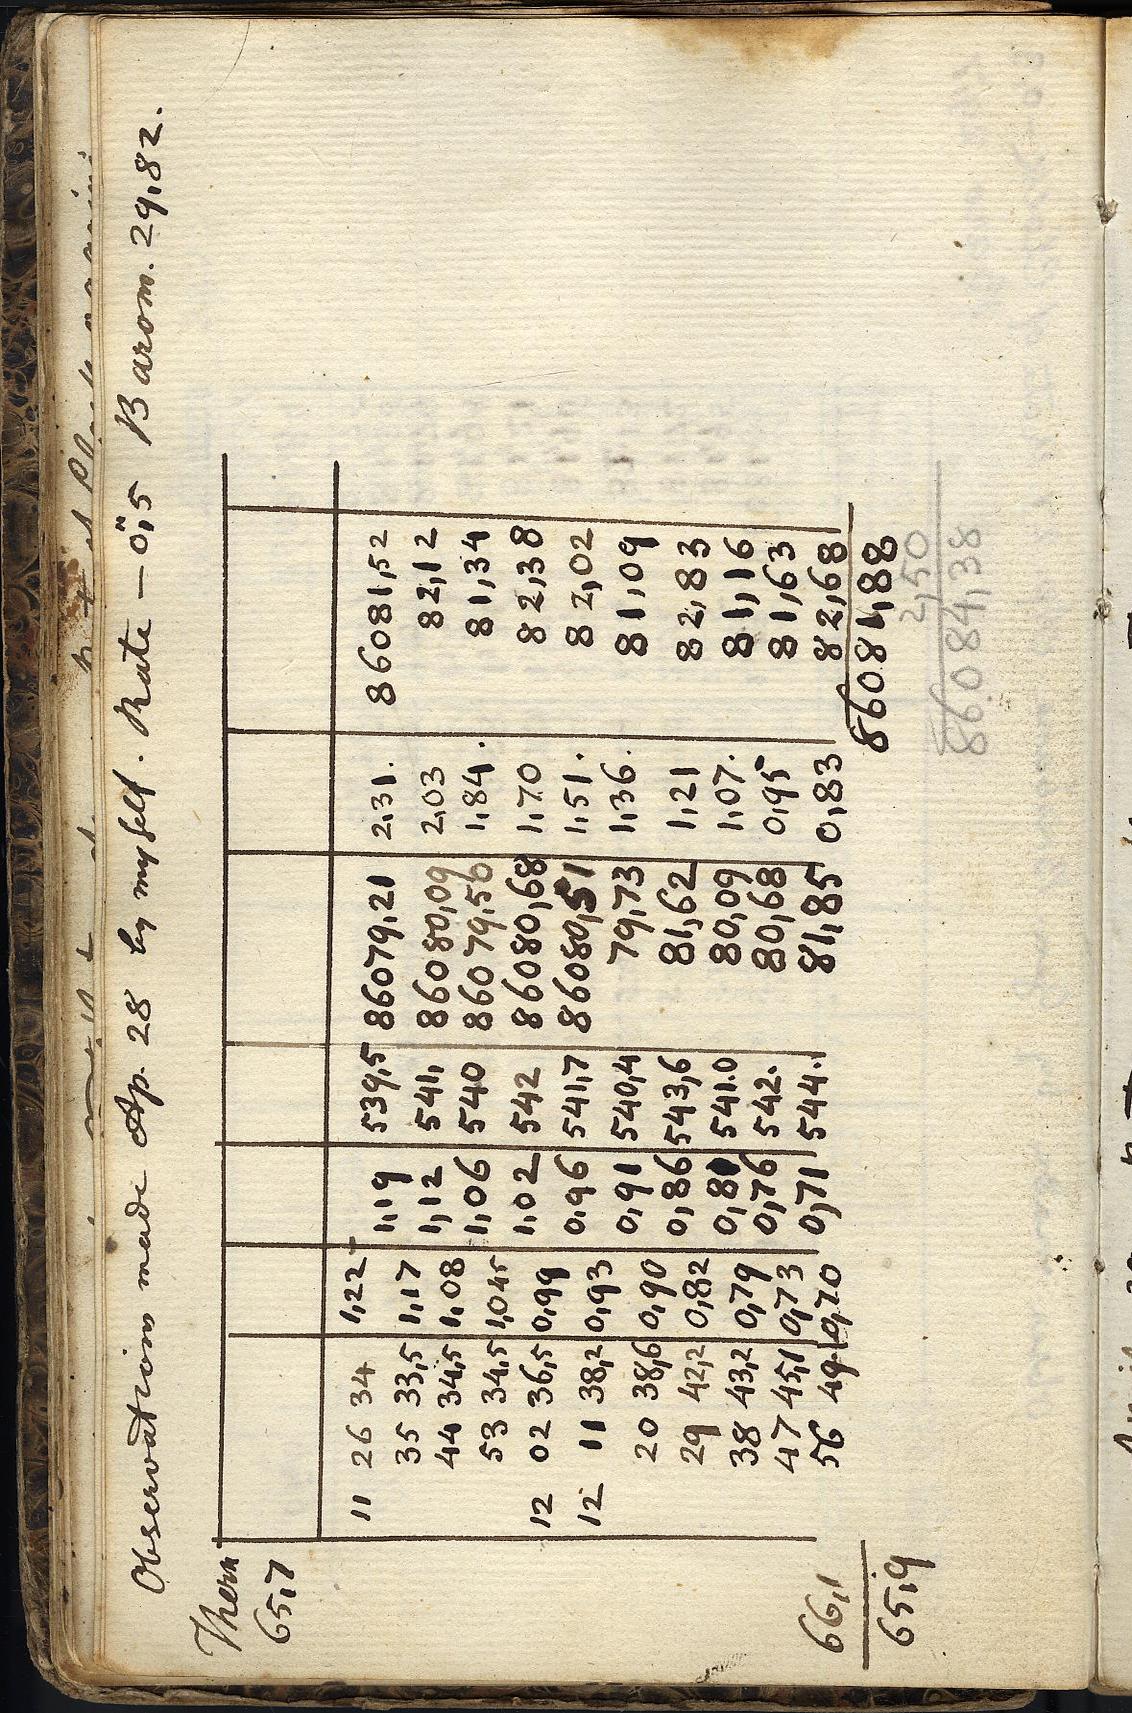 Observations made Ap. 28 by myself. Rate – 0",5 Barom. 29,82.
Therm
65,7
11 26 34 1,22
1,19 539,5 86079,21 2,31. 86081,52
35 33,5 1,17
1,12 541, 86080,09 2,03 82,12
44 34,5 1,08
1,06 540 86079,50 1,84. 81,34
53 34,5 1,045
1,02 542 86080,68 1,70 82,38
12 02 36,5 0,99
0,96 541,7 86080,51 1,51. 82,02
12 11 38,2 0,93
0,91 540,4 79,73 1,36. 81,09
20 38,6 0,90
0,86 543,6 81,62 1,21 82,83
29 42,2 0,82
0,80 541.0 80,09 1,07. 81,16
38 43,2 0,79
0,76 542. 80,68 0,95 81,63
47 45,1 0,73
0,71 544. 81,85 0,83 82,68
66,1 56 49. 0,70
65,9 86081,88
2,50
86084,38